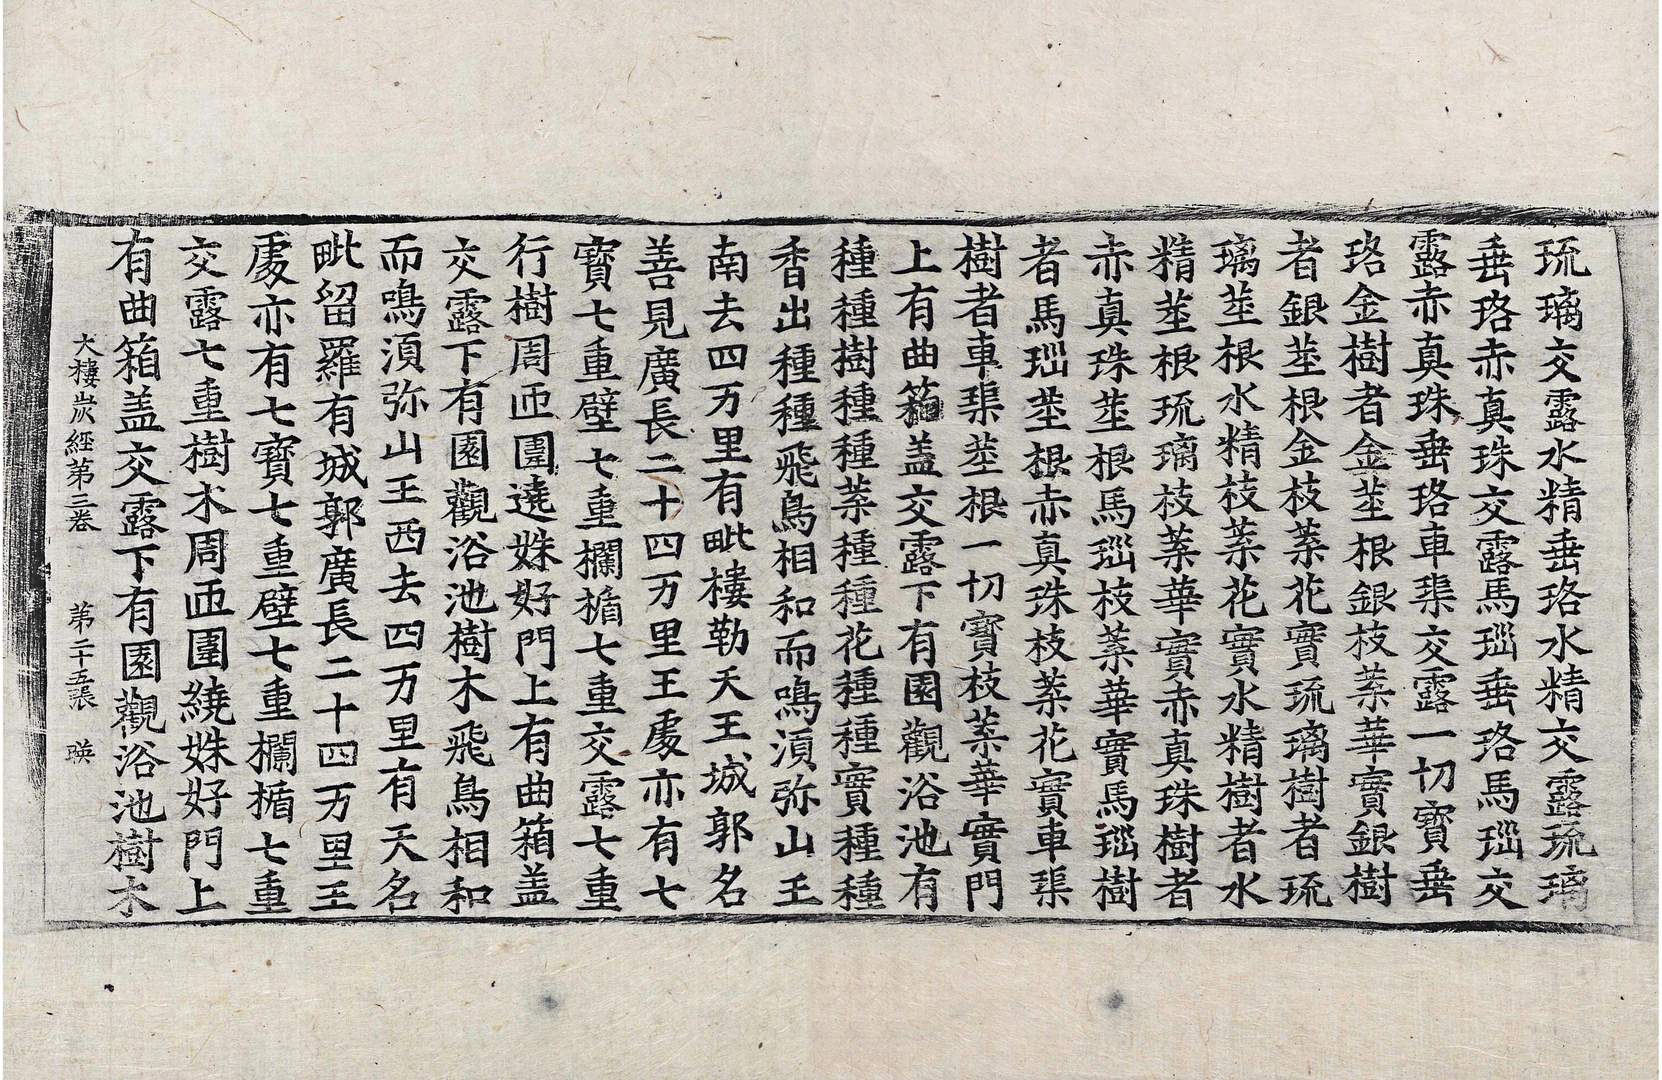 琉璃交露水精垂珞水精交露琉璃
垂珞赤真珠交露馬瑙垂珞馬瑙交
露赤真珠垂珞車璖交露一切寶垂
珞金樹者金莖根銀枝葉華實銀樹
者銀莖根金枝葉花實琉璃樹者琉
璃莖根水精枝葉花實水精樹者水
精莖根琉璃枝葉華實赤真珠樹者
赤真珠莖根馬瑙枝葉華實馬瑙樹
者馬瑙莖根赤真珠枝葉花實車璖
樹者車璖莖根一切寶枝葉華實門
上有曲箱盖交露下有園觀浴池有
種種樹種種葉種種花種種實種種
香出種種飛鳥相和而鳴湏弥山王
南去四万里有毗樓勒天王城郭名
善見廣長二十四万里王處亦有七
寶七重壁七重欄楯七重交露七重
行樹周迊圍遶姝好門上有曲箱盖
交露下有園觀浴池樹木飛鳥相和
而鳴湏弥山王西去四万里有天名
毗留羅有城郭廣長二十四万里王
處亦有七寶七重壁七重欄楯七重
交露七重樹木周迊圍繞姝好門上
有曲箱盖交露下有園觀浴池樹木
大樓炭經第三卷 第二十五張 暎